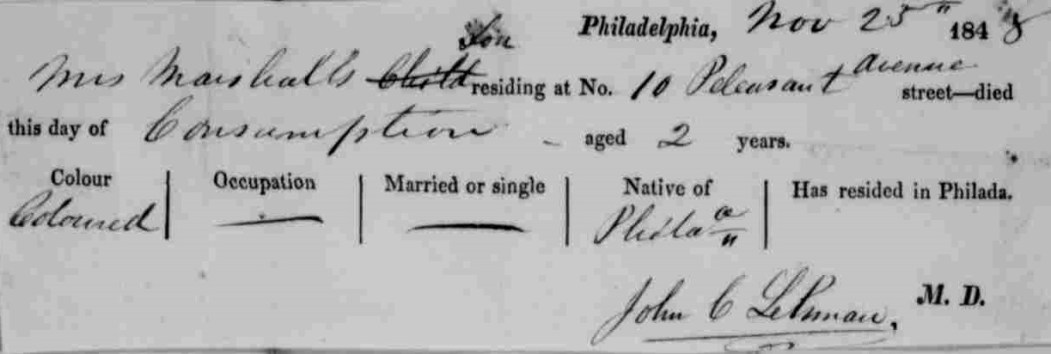 Philadelphia, Nov 25" 1848
Son
Mrs Marshall's Child residing at No. 10 Pleasant Avenue street—died
this day of Consumption - aged 2 years.
Colour | Occupation | Married or single | Native of | Has resided in Philada.
Coloured — — Philaᵃ "
John C M. D.